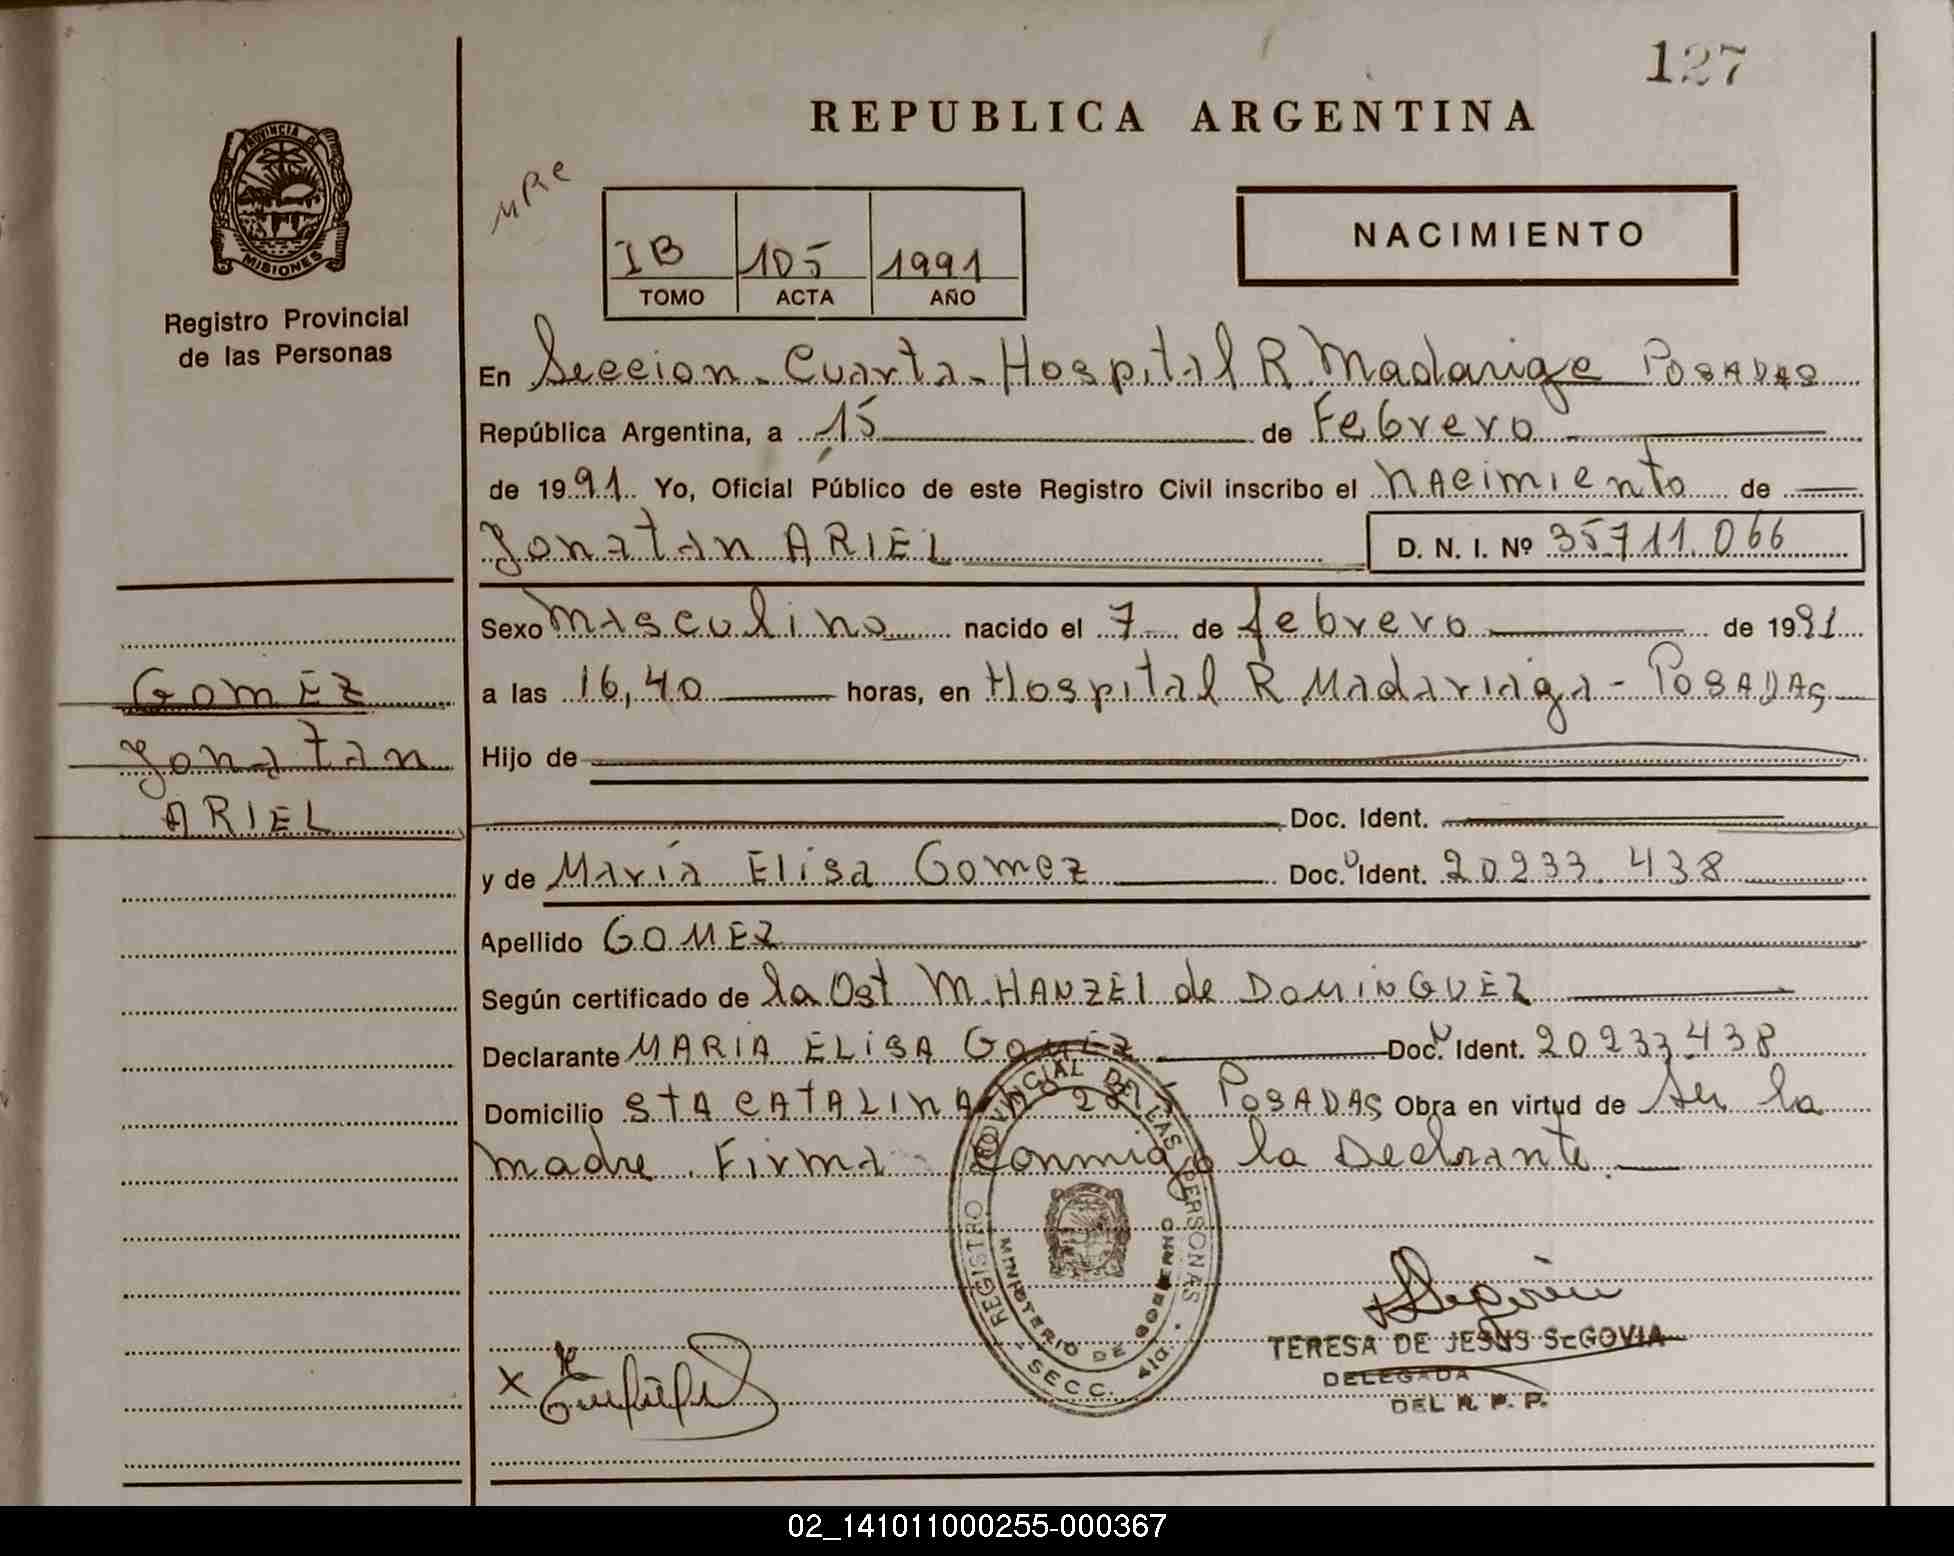 127
REPUBLICA ARGENTINA
PROVINCIA DE
MISIONES
Registro Provincial
de las Personas
IB 105 1991
TOMO ACTA AÑO
NACIMIENTO
En Seccion Cuarta - Hospital R Madariaga POSADAS
República Argentina, a 15 de Febrero
de 1991. Yo, Oficial Público de este Registro Civil inscribo el nacimiento de
Jonatan ARIEL D. N. I. Nº 35711.066
Sexo masculino nacido el 7 de febrero de 1991
GOMEZ
Jonatan
ARIEL
a las 16,40 horas, en Hospital R Madariaga - POSADAS
Hijo de
Doc. Ident.
y de María Elisa Gomez Doc. U Ident. 20233.438
Apellido GOMEZ
Según certificado de la Ost M. HANZEI de DOMINGUEZ
Declarante MARIA ELISA GOMEZ Doc. U Ident. 20233438
Domicilio STA CATALINA POSADAS Obra en virtud de ser la
madre. Firma Conmigo la Declrante.
REGISTRO PROVINCIAL DE LAS PERSONAS
MINISTERIO DE GOBIERNO
SECC. 4ta.
X
TERESA DE JESUS SEGOVIA
DELEGADA
DEL R. P. P.
02_141011000255-000367